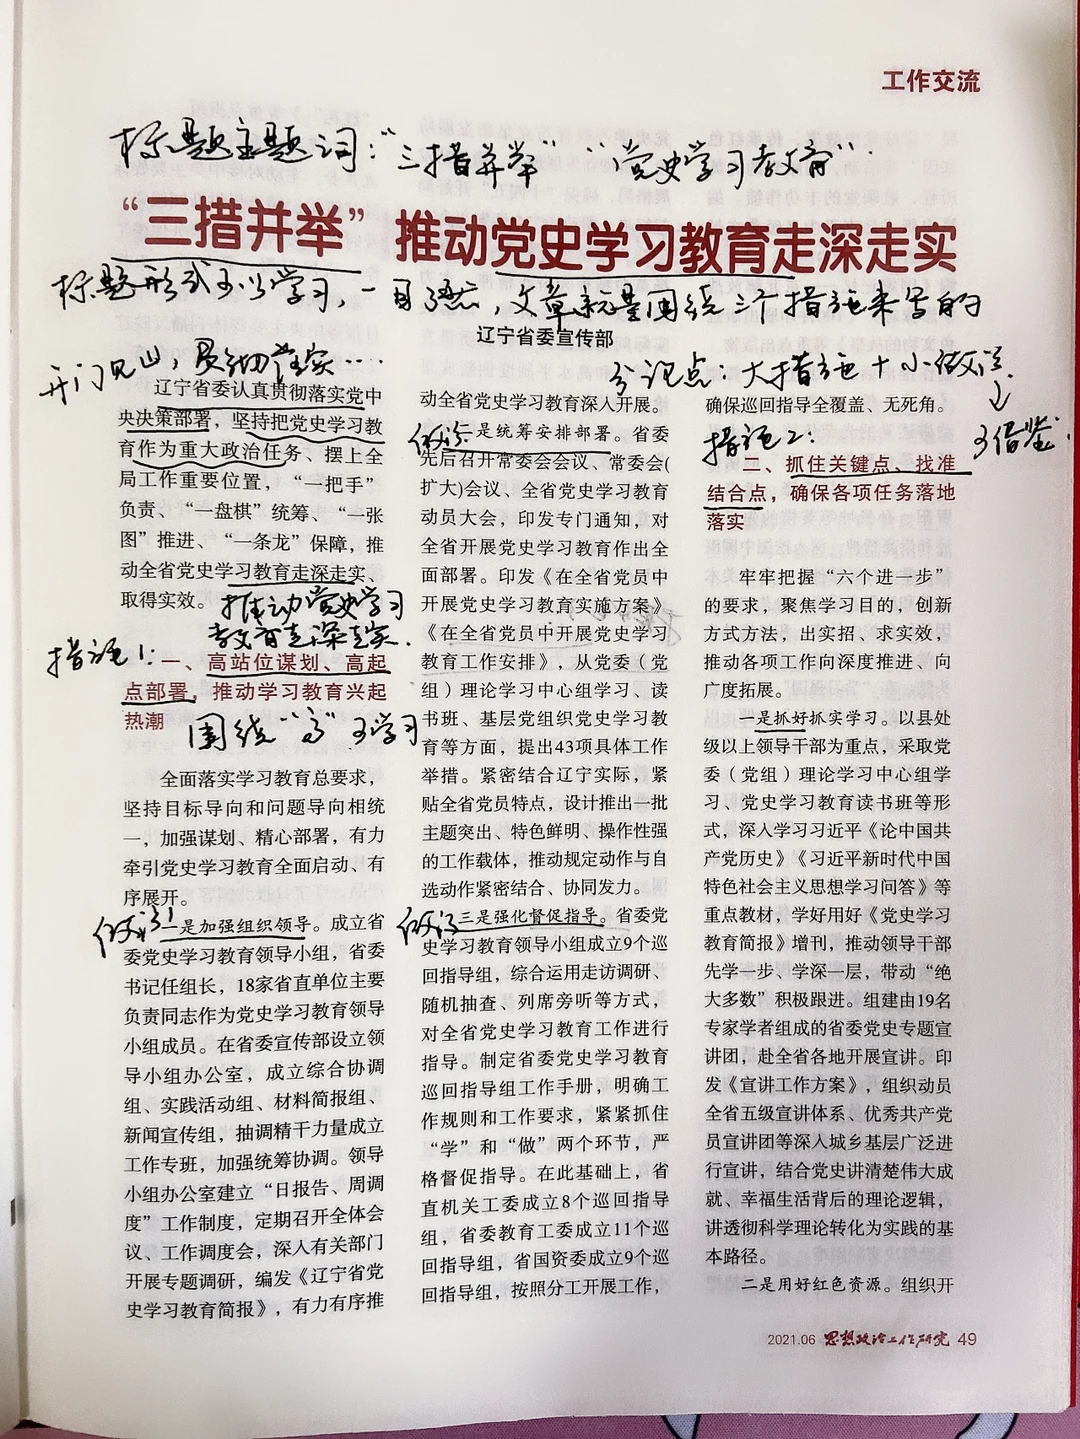 工作交流
标题主题词："三措并举" "党史学习教育"
“三措并举” 推动党史学习教育走深走实
标题形式可以学习，一目了然，文章就是围绕三个措施来写的
辽宁省委宣传部
开门见山，贯彻落实……
分论点：大措施+小做法
↓
可借鉴
辽宁省委认真贯彻落实党中
央决策部署，坚持把党史学习教
育作为重大政治任务、摆上全
局工作重要位置，“一把手”
负责、“一盘棋”统筹、“一张
图”推进、“一条龙”保障，推
动全省党史学习教育走深走实、
取得实效。
推动党史学习
教育走深走实.
措施1:
一、高站位谋划、高起
点部署，推动学习教育兴起
热潮
围绕“高”可学习
全面落实学习教育总要求，
坚持目标导向和问题导向相统
一，加强谋划、精心部署，有力
牵引党史学习教育全面启动、有
序展开。
做法1
一是加强组织领导。成立省
委党史学习教育领导小组，省委
书记任组长，18家省直单位主要
负责同志作为党史学习教育领导
小组成员。在省委宣传部设立领
导小组办公室，成立综合协调
组、实践活动组、材料简报组、
新闻宣传组，抽调精干力量成立
工作专班，加强统筹协调。领导
小组办公室建立“日报告、周调
度”工作制度，定期召开全体会
议、工作调度会，深入有关部门
开展专题调研，编发《辽宁省党
史学习教育简报》，有力有序推
动全省党史学习教育深入开展。
做法
二是统筹安排部署。省委
先后召开常委会会议、常委会(
扩大)会议、全省党史学习教育
动员大会，印发专门通知，对
全省开展党史学习教育作出全
面部署。印发《在全省党员中
开展党史学习教育实施方案》
《在全省党员中开展党史学习
教育工作安排》，从党委（党
组）理论学习中心组学习、读
书班、基层党组织党史学习教
育等方面，提出43项具体工作
举措。紧密结合辽宁实际，紧
贴全省党员特点，设计推出一批
主题突出、特色鲜明、操作性强
的工作载体，推动规定动作与自
选动作紧密结合、协同发力。
做法
三是强化督促指导。省委党
史学习教育领导小组成立9个巡
回指导组，综合运用走访调研、
随机抽查、列席旁听等方式，
对全省党史学习教育工作进行
指导。制定省委党史学习教育
巡回指导组工作手册，明确工
作规则和工作要求，紧紧抓住
“学”和“做”两个环节，严
格督促指导。在此基础上，省
直机关工委成立8个巡回指导
组，省委教育工委成立11个巡
回指导组，省国资委成立9个巡
回指导组，按照分工开展工作，
确保巡回指导全覆盖、无死角。
措施2:
二、抓住关键点、找准
结合点，确保各项任务落地
落实
牢牢把握“六个进一步”
的要求，聚焦学习目的，创新
方式方法，出实招、求实效，
推动各项工作向深度推进、向
广度拓展。
一是抓好抓实学习。以县处
级以上领导干部为重点，采取党
委（党组）理论学习中心组学
习、党史学习教育读书班等形
式，深入学习习近平《论中国共
产党历史》《习近平新时代中国
特色社会主义思想学习问答》等
重点教材，学好用好《党史学习
教育简报》增刊，推动领导干部
先学一步、学深一层，带动“绝
大多数”积极跟进。组建由19名
专家学者组成的省委党史专题宣
讲团，赴全省各地开展宣讲。印
发《宣讲工作方案》，组织动员
全省五级宣讲体系、优秀共产党
员宣讲团等深入城乡基层广泛进
行宣讲，结合党史讲清楚伟大成
就、幸福生活背后的理论逻辑，
讲透彻科学理论转化为实践的基
本路径。
二是用好红色资源。组织开
2021.06 思想政治工作研究 49